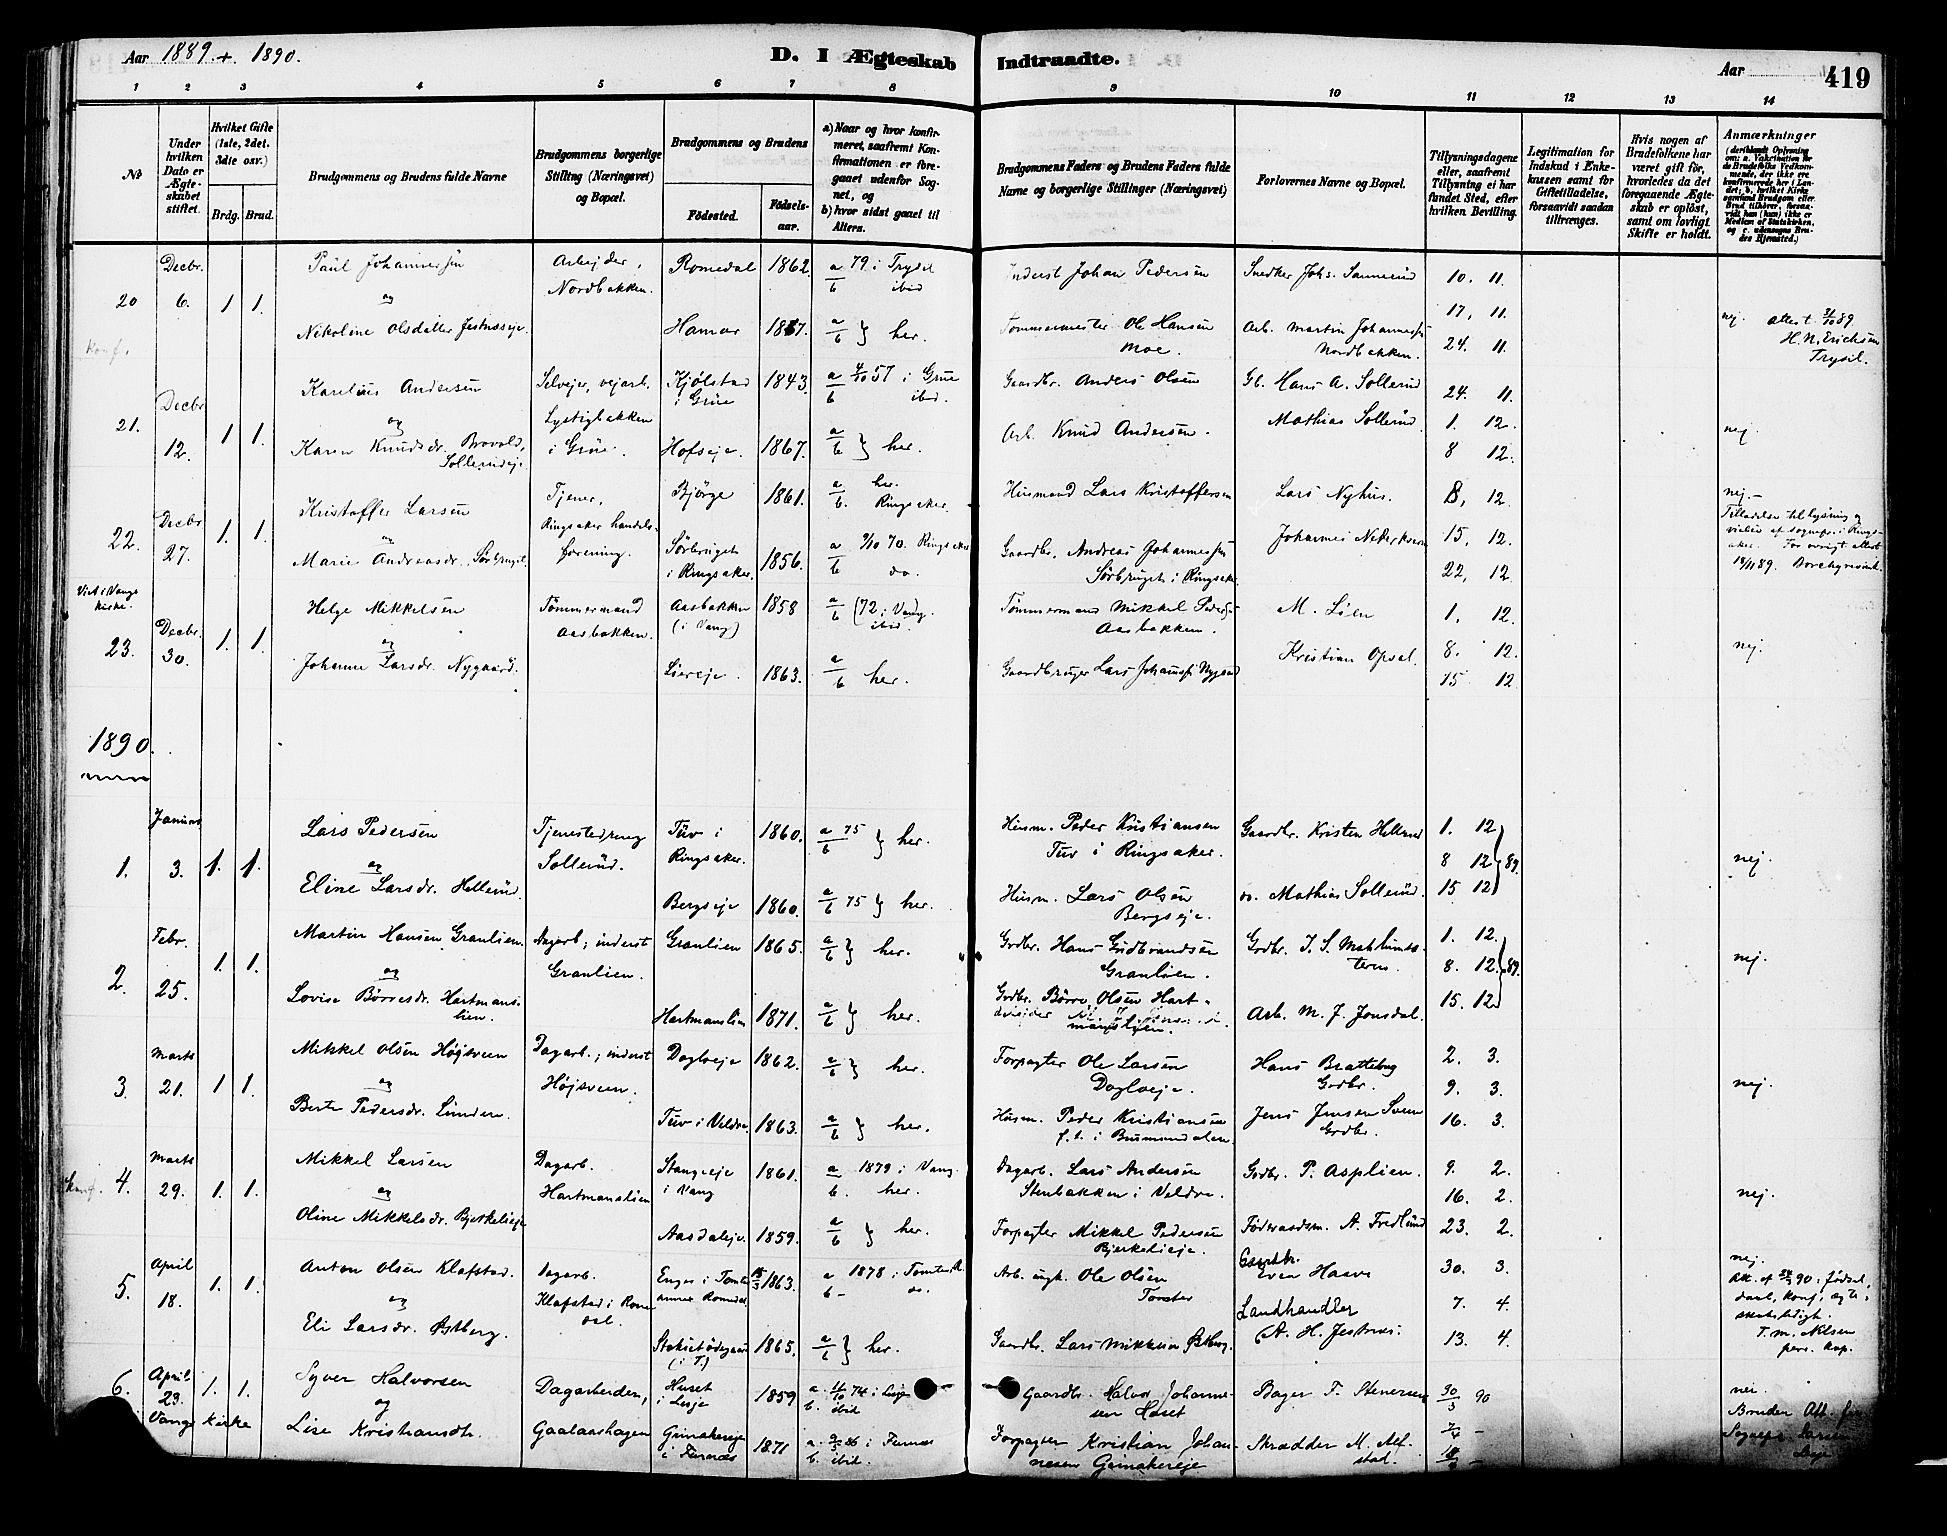 Aar 1889 + 1890.
D. I Ægteskab Indtraadte.
Aar
419
1 2 3 4 5 6 7 8 9 10 11 12 13 14
No
Under hvilken Dato er Ægteskabet stiftet.
Hvilket Gifte (1ste, 2det, 3die osv.)
Brdg. Brud.
Brudgommens og Brudens fulde Navne
Brudgommens borgerlige Stilling (Næringsvei) og Bopæl.
Brudgommens og Brudens
Fødested.
Fødselsaar.
a) Naar og hvor konfirmeret, saafremt Konfirmationen er foregaaet udenfor Sognet, og
b) hvor sidst gaaet til Alters.
Brudgommens Faders og Brudens Faders fulde Navne og borgerlige Stillinger (Næringsvei)
Forlovernes Navne og Bopæl.
Tillysningsdagene eller, saafremt Tillysning ei har fundet Sted, efter hvilken Bevilling.
Legitimation for Indskud i Enkekassen samt for Giftetilladelse, forsaavidt saadan tiltrænges.
Hvis nogen af Brudefolkene har været gift før, hvorledes da det foregaaende Ægteskab er opløst, samt om lovligt Skifte er holdt.
Anmærkninger
20 Decbr. 6. 1 1. Paul Johannessen Arbejder, Nordbakken. Romedal 1862. a 79 i Trysil b ibid Inderst Johan Pedersen Snedker Johs. Sannerud 10. 11.
og
Nikoline Olsdatter Jestnæseje Hamar 1867. a/b } her. Tømmermester Ole Hansen Moe. Arb. Martin Johannessen Nordbakken. 17, 11. 24. 11. nej. Attest 89 H. N. Erichsen Trysil.
konf.
21. Decbr 12. 1 1. Karelius Andersen Selvejer, vejarb. Lystigbakken i Grue. Kjølstad i Grue 1843. a 57 i Grue b ibid. Gaardbr. Anders Olsen Gb. Hans A. Sollerud 24. 11.
og
Karen Knudsdr. Brovold, Sollerudeje Hofseje. 1867. a/b } her. Arb. Knud Andersen. Mathias Sollerud 1. 12. 8 12. nej.
22. Decbr 27. 1. 1. Kristoffer Larsen Tjener, Ringsaker handelsforening. Bjørge 1861. a her. b. Ringsaker. Husmand Lars Kristoffersen Lars Nyhus. 8, 12. nej.
og
Marie Andreasdr. Sørbruget. Sørbruget i Ringsaker. 1856. a 9/10 70. Ringsaker b do. Gaardbr. Andreas Johannessen Sørbruget i Ringsaker 15, 12. 22, 12. Tilladelse til lysning og vielse af sognepr. i Ringsaker. For øvrigt attest
Viet i Vangs kirke.
23. Decbr. 30. 1. 1. Helge Mikkelsen Tømmermand Aasbakken. Aasbakken (i Vang) 1858 a/b (72 i Vang. ibid. Tømmermand Mikkel Peders. Aasbakken. M. Lien 1, 12.
og
Johanne Larsdr. Nygaard. Liereje. 1863. a/b her. Gaardbruger Lars Johannss. Nygaard Kristian Opsal. 8. 12. 15 12 nej.
1890.
1. Januar 3. 1. 1. Lars Pedersen Tjenestedreng Sollerud. Tuv i Ringsaker. 1860. a 75 b } her. Husm. Peder Kristiansen Tuv i Ringsaker. Gaardbr. Kristen Hellerud 1. 12 8 12 89.
og
Eline Larsdr. Hellerud. Bergseje 1860. a/b 75 } her. Husm. Lars Olsen Bergseje. Mathias Sollerud 15 12 nej.
2. Febr. 25. 1. 1. Martin Hansen Granlien. Dagarb; inderst Granlien. Granlien 1865. a/b } her. Grdbr. Hans Gudbrandsen Granlien. Grdbr. 1. 12. 8. 12. 89.
og
Lovise Børresdr. Hartmanslien. Hartmanslien 1871. a/b } her. Grdbr. Børre Olsen Hartmanslien. Arb. M. J. Jonsdal. 15. 12 nej.
3. Marts 21. 1 1. Mikkel Olsen Højsveen Dagarb; inderst Højsveen. Dagloeje 1862. a/b } her. Forpagter Ole Larsen Dagloeje. Hans Bratteberg Grdbr. 2. 3. 9. 3.
og
Berte Pedersdr. Lunden. Tuv i Veldre. 1863. a/b } her. Husm. Peder Kristiansen f. t. i Brumunddalen. Jens Jensen Sveen Grdbr. 16. 3. nej.
konf. 4. Marts 29. 1. 1. Mikkel Larsen Dagarb. Hartmanslien Stangeeje i Vang 1861. a 1879 i Vang. b. her. Dagarb. Lars Andersen Stenbakken i Veldre. Grdbr. P. Asplien. 9. 2. 16. 2.
og
Oline Mikkelsdr. Bjerkelieeje Aasdaleje. 1859. a/b } her. Forpagter Mikkel Pedersen Bjerkelieeje. Føderaadsm. A. Fredlund 23. 2. nej.
5. April 18. 1. 1. Anton Olsen Klafstad. Dagarb. Klafstad i Romedal. Enger i Tomter annex Romedal 1863. a 1878 i Tomter b - do. Arb. ugk. Ole Olsen Tomter Gaardbr. Even Haave 30. 3. 7. 4. nej.
og
Eli Larsdr. Østberg. 1865. a/b } her. Gaardbr. Lars Mikkelsen Østberg. Landhandler A. H. Jestnæs. 13. 4. Att. af 90: fødsel, daab, konf, ægteskabsledigh. T. M. Nilsen pers. kap.
6. April 23. 1. 1. Syver Halvorsen Dagarbeider, Gaalaashagen Huset i Lesje 1859 a. 74 i Lesje b. ibid Gaardbr. Halvor Johannesen Huset Bager F. Stenersen 30/3 90 nei.
Vangs Kirke og
Lise Kristiansdtr. Grimakereje i Furnæs 1871 a. 86 i Furnæs b. ibid. Forpagter Kristian Johannesen Grimakereje Skrædder M. Alfstad. Bruden Att. fra Sognepr. Larsen Lesje